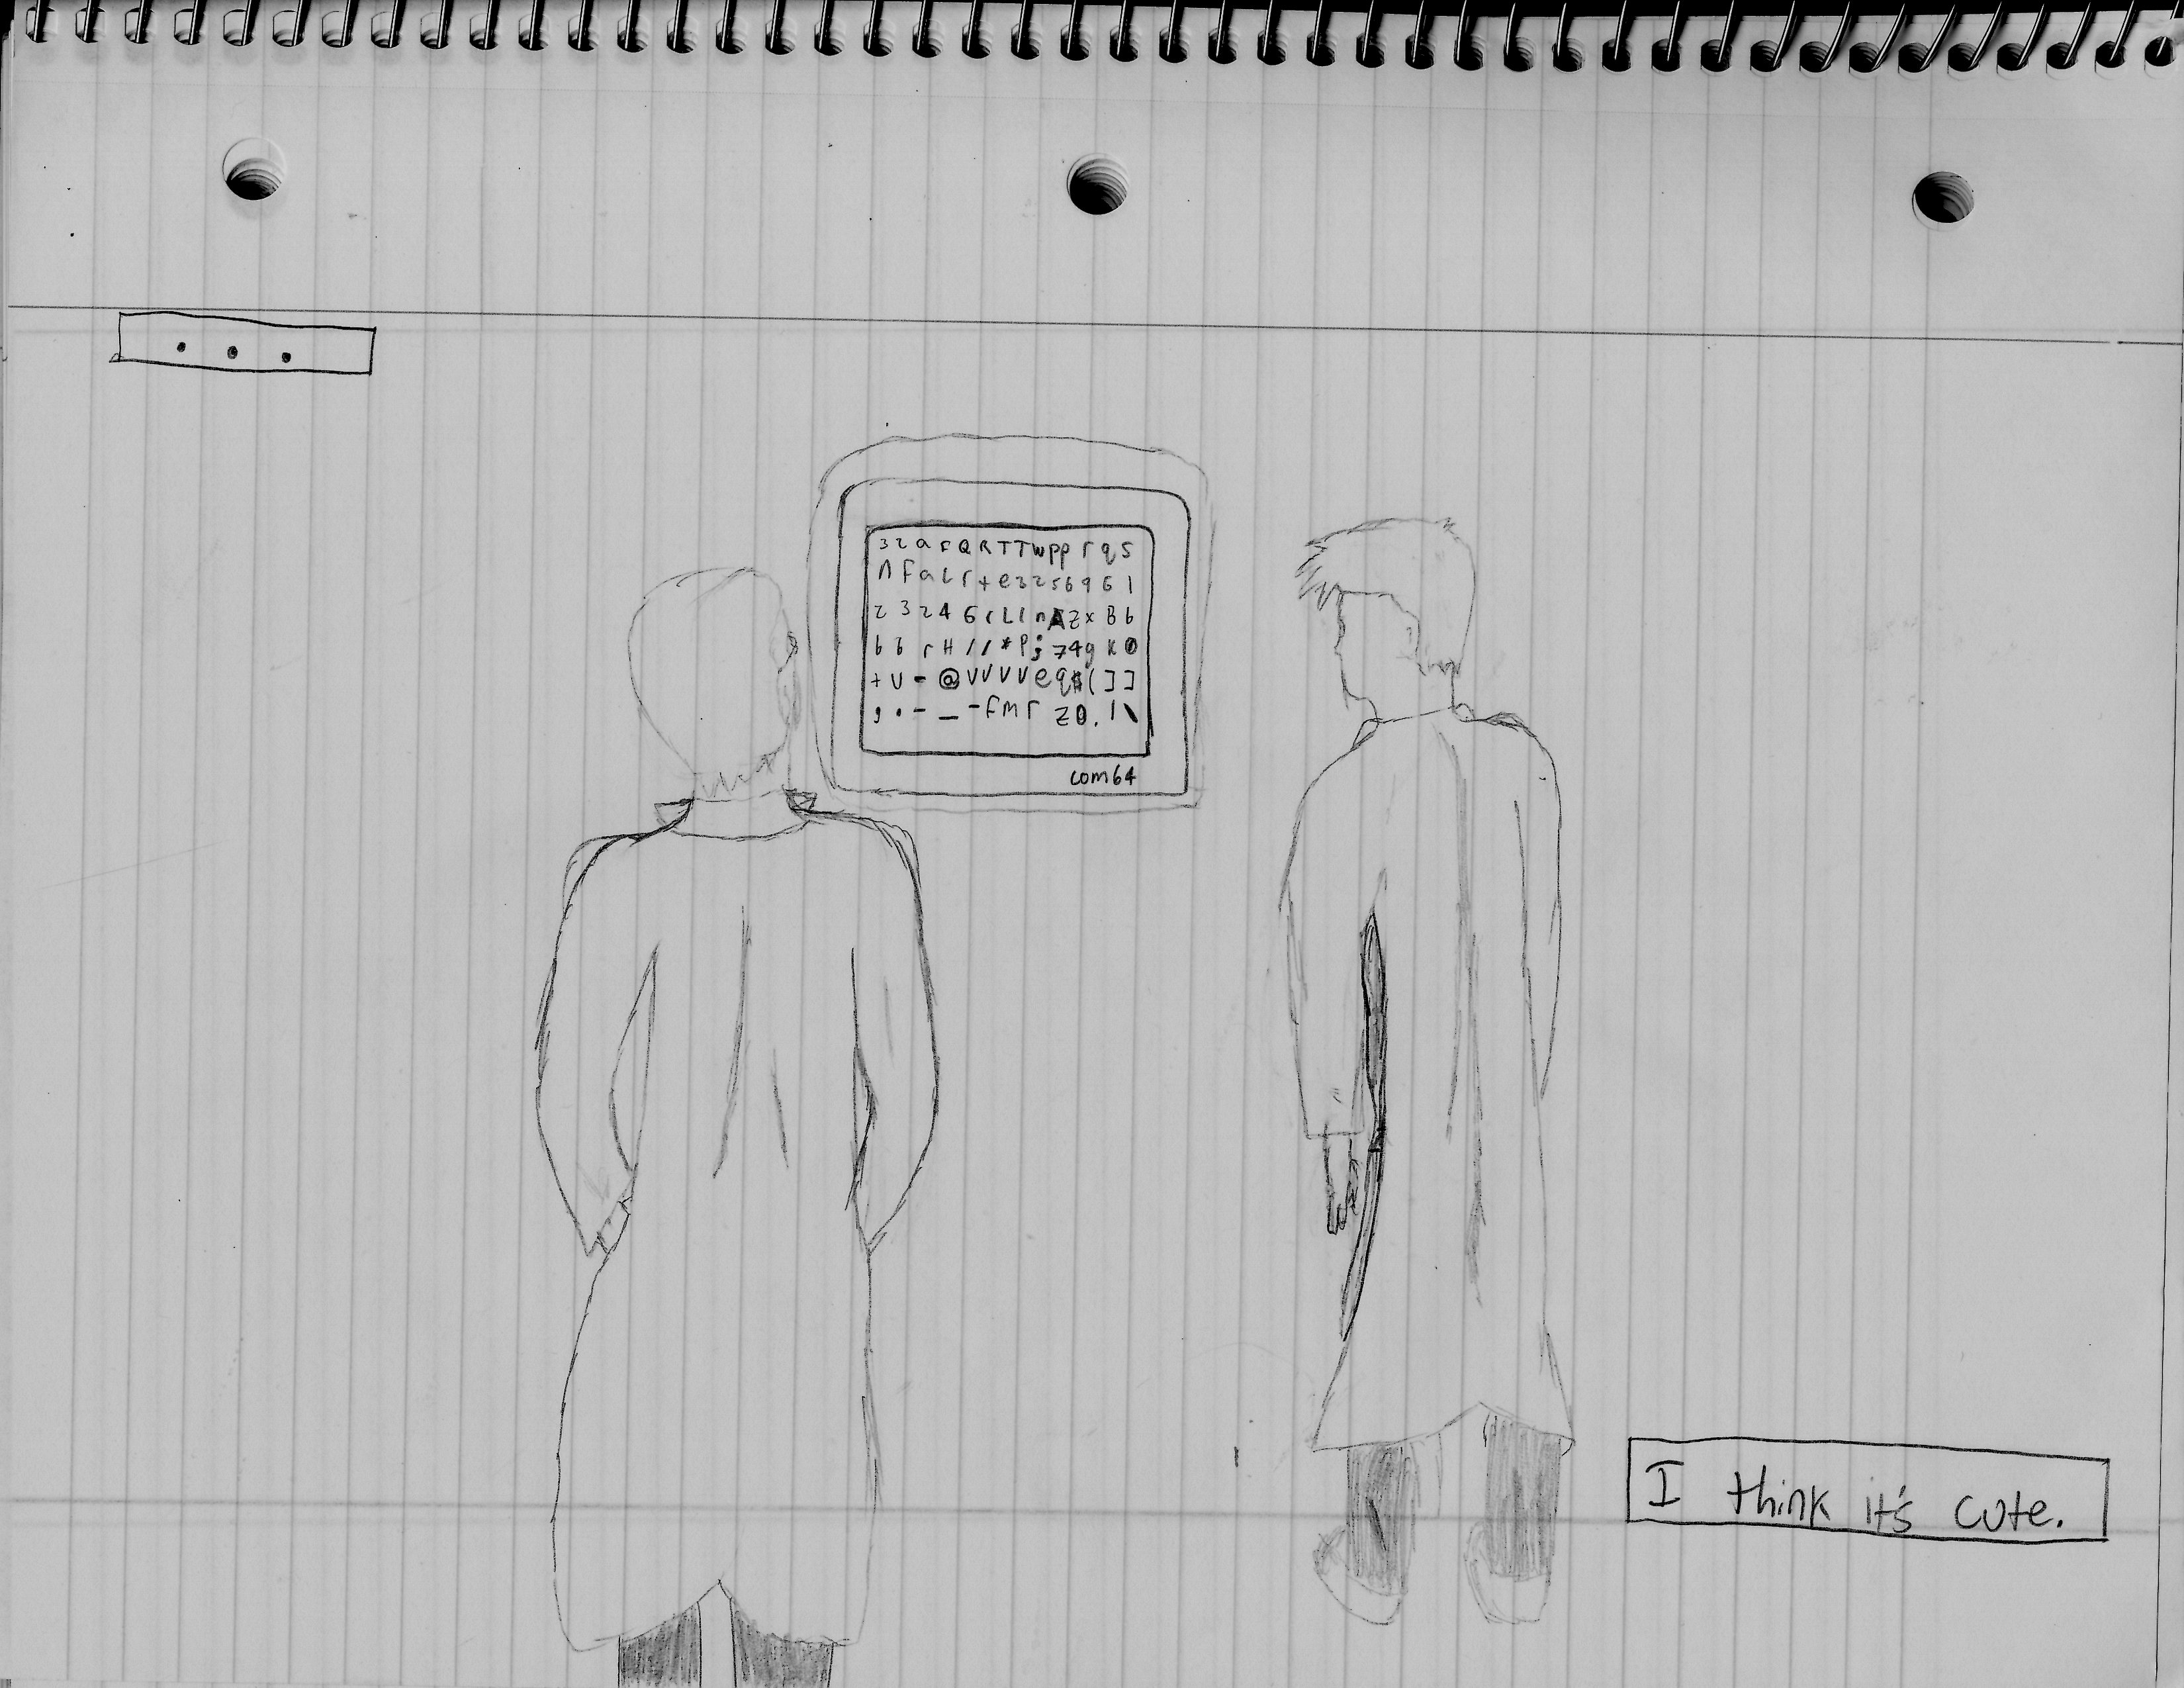 ...
3 2 a F Q R T T W p p r q 5
n f a L r + e 3 2 5 6 9 6 1
2 3 2 4 6 r L l n A Z x B b
b 2 r H / / * P ; 7 4 g K 0
+ U - @ V V V V e q $ ( ] ]
, . - _ - f m r z 0 . 1 \
com64
I think it's cute.